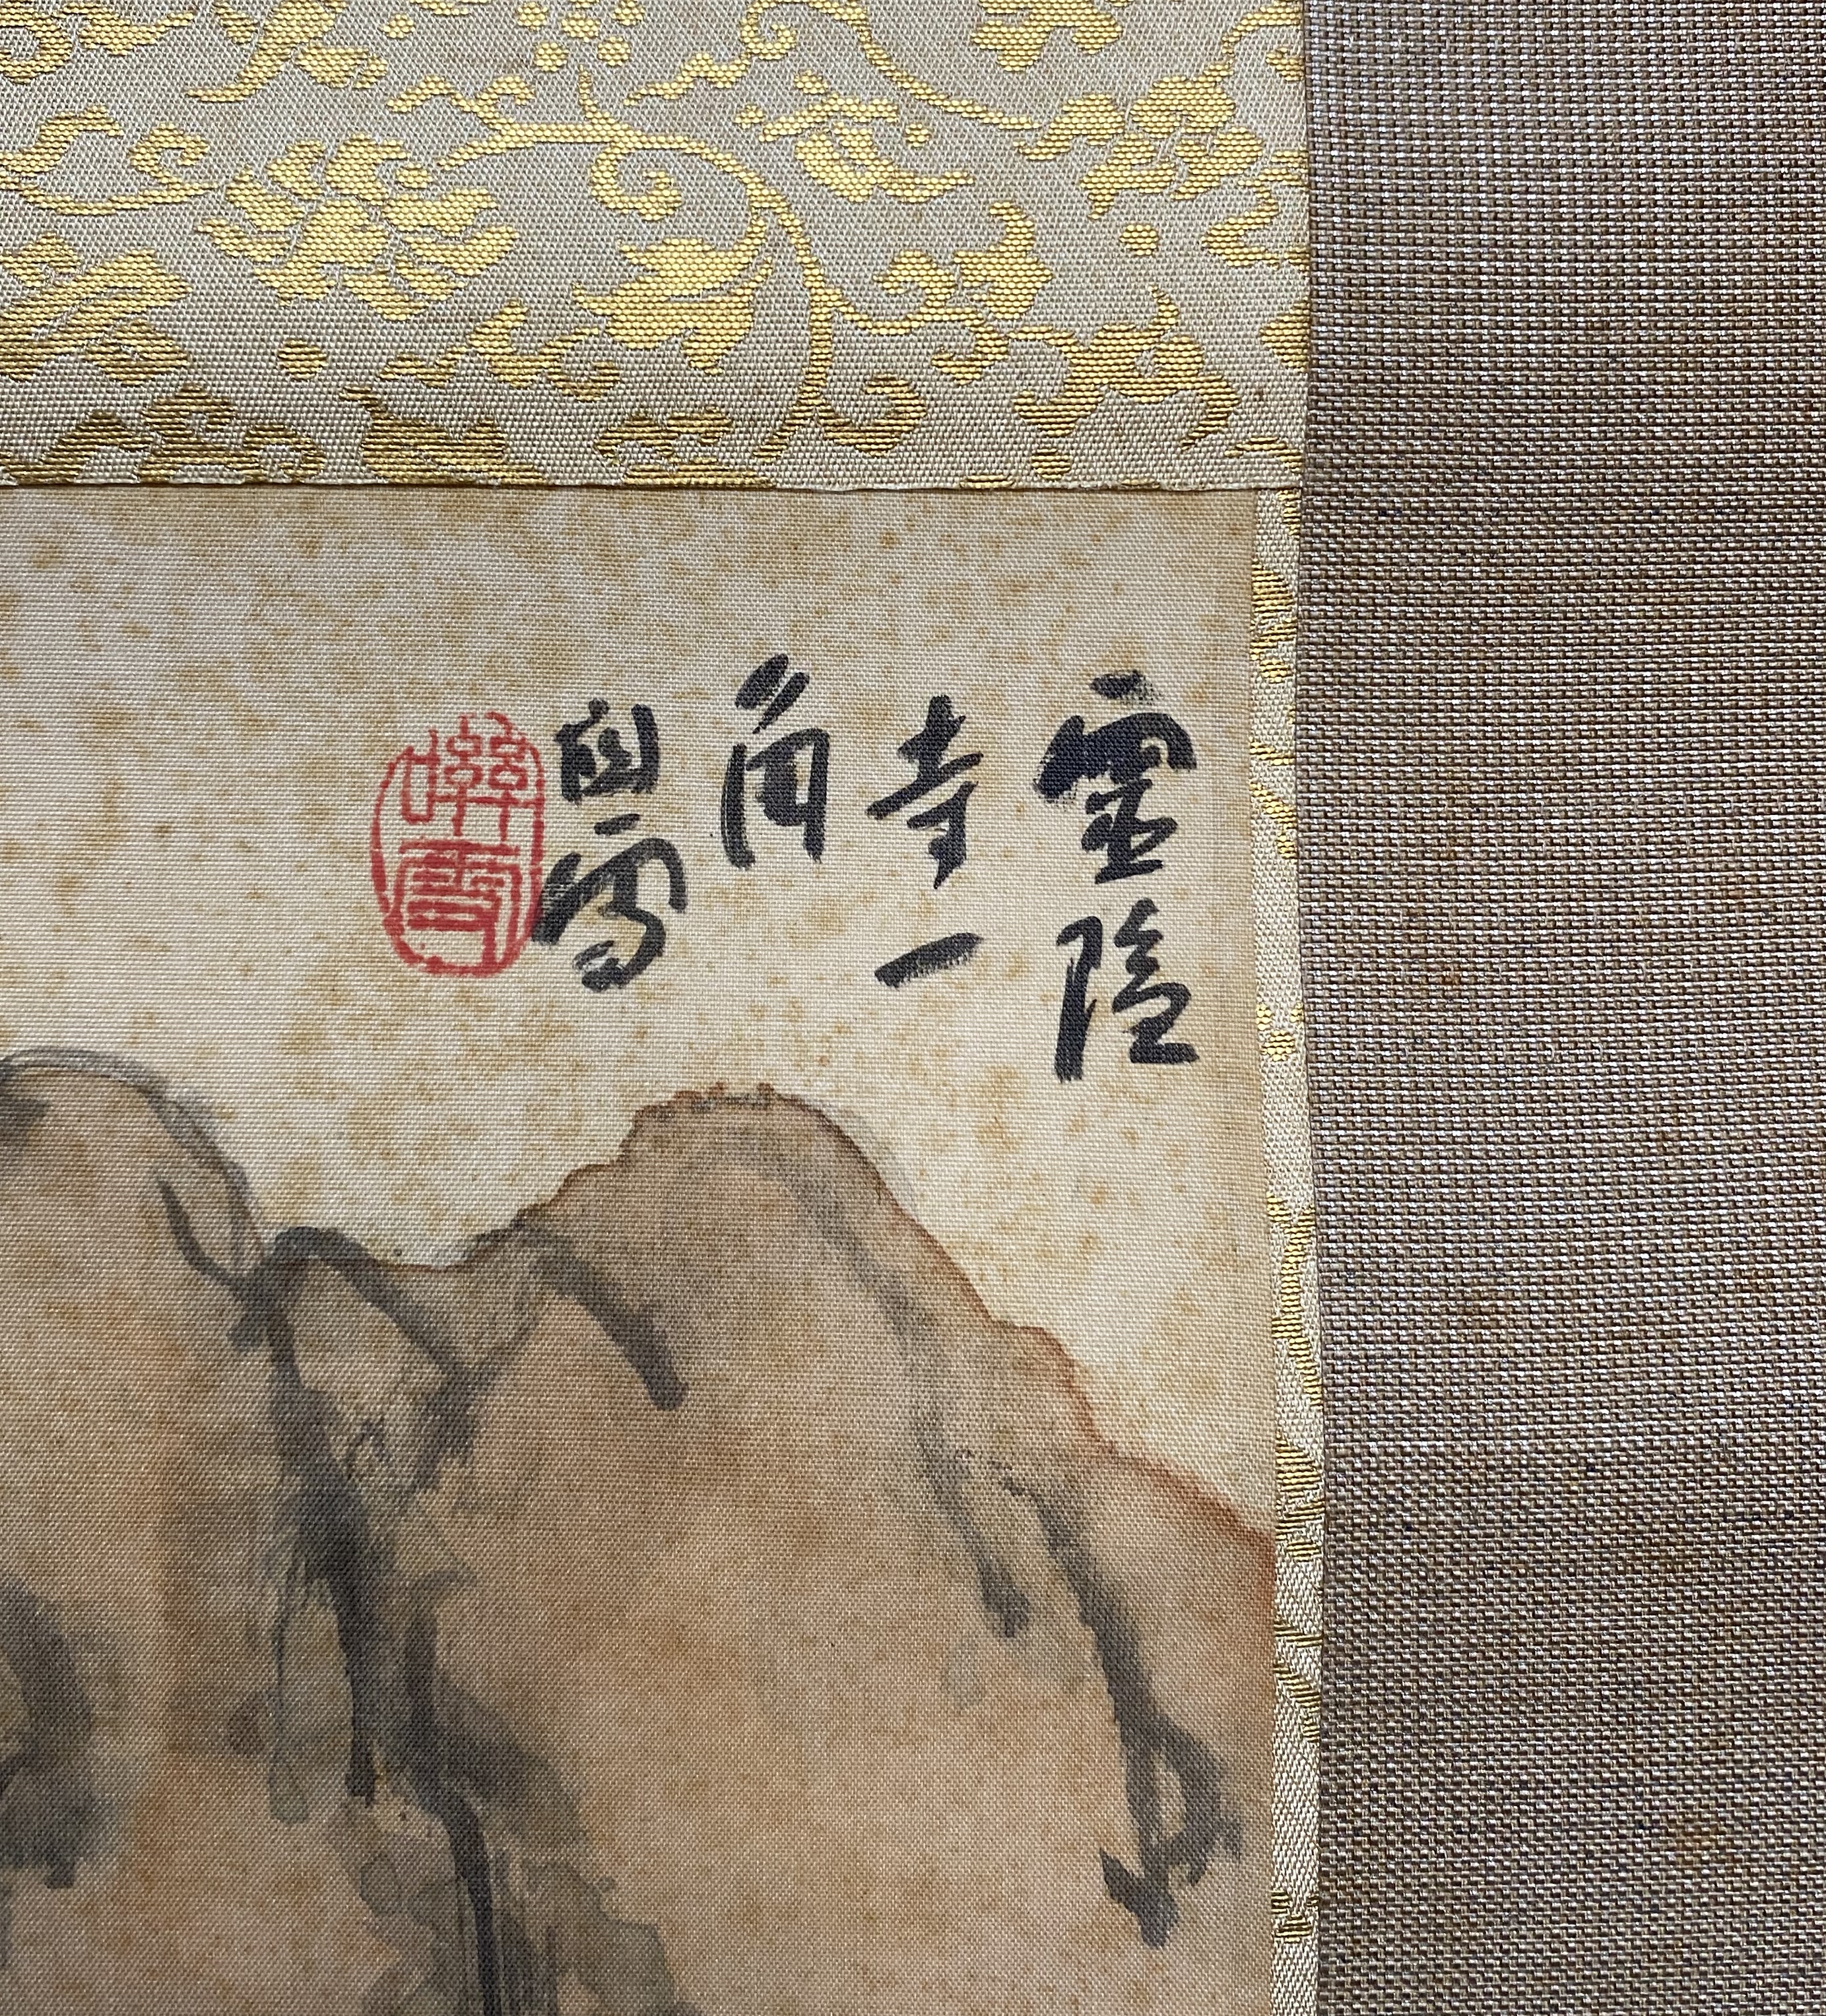 靈隱
寺一
角
雪